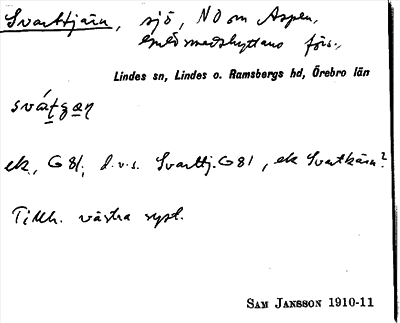 Svarttjärn, sjö, NO om Aspen,
Gusselby förs.,
Lindes sn, Lindes o. Ramsbergs hd, Örebro län
svát̯g̯an̯
ek. G 81, d.v.s. Svarttj. G 81, ek Svartkärn?
Tillh. västra syst.
SAM JANSSON 1910-11